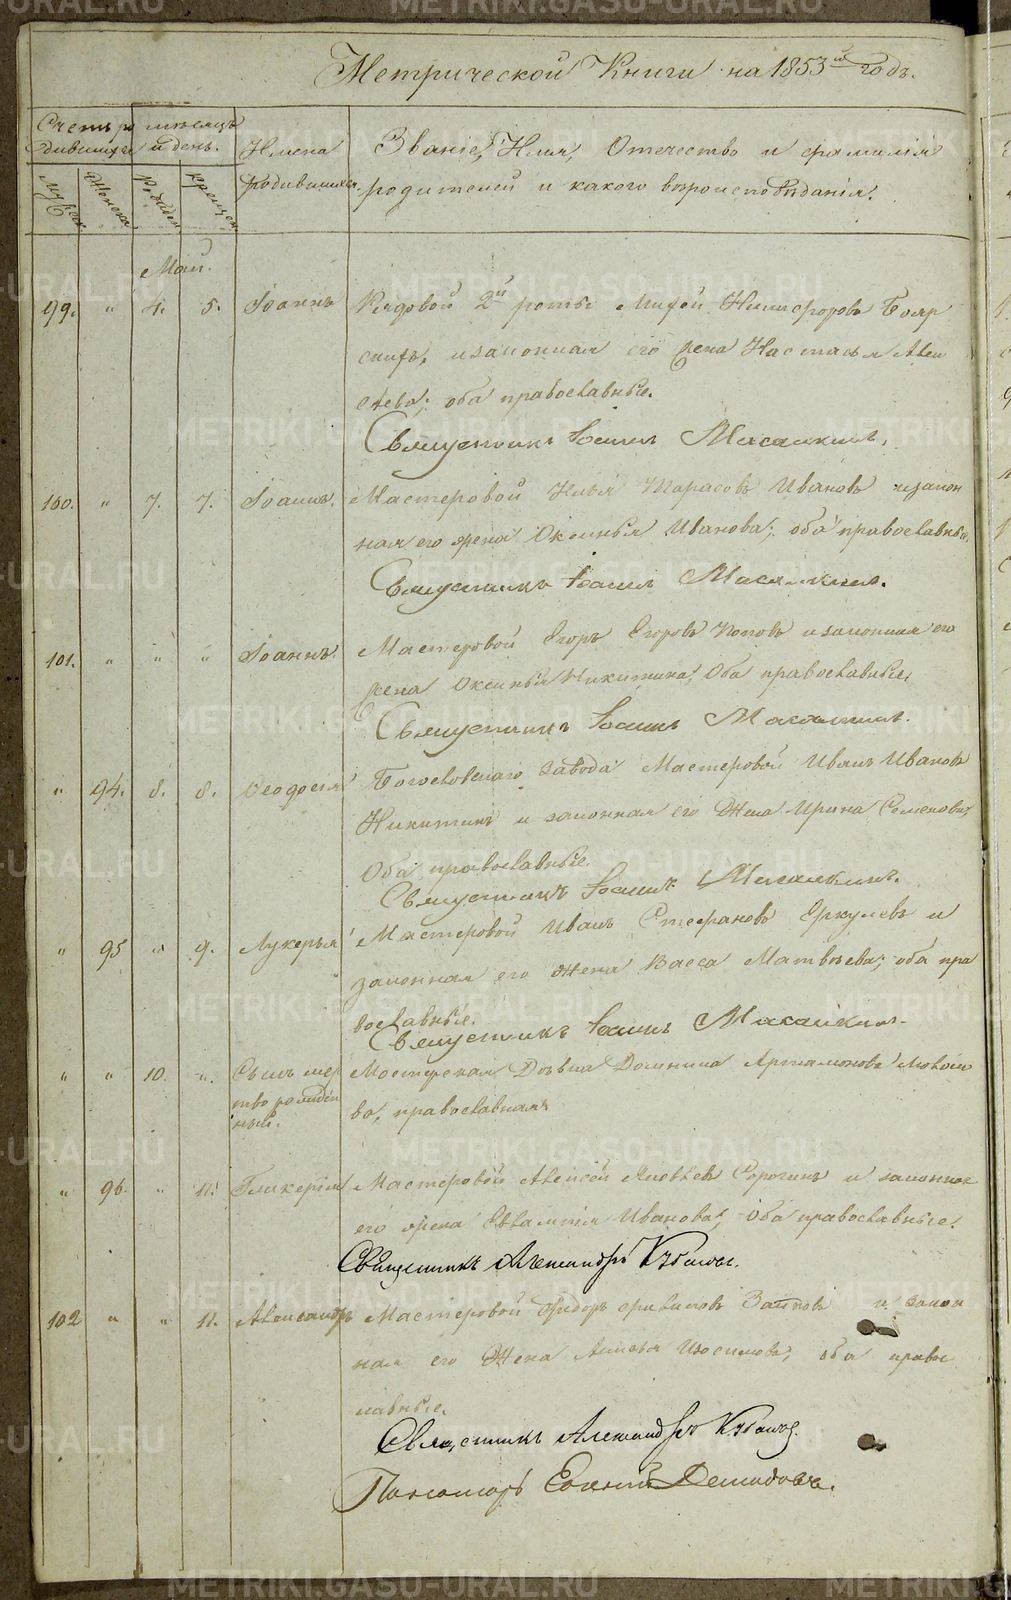 Метрической Книги на 1853й годъ.
Счетъ ро дившихся
Мѣсяцъ и день.
Имена родившихся.
Званіе, Имя, Отечество и фамилія
родителей и какого вѣроисповѣданія.
Мужеска
Женска
Рожден
Крещен
Май.
99. " 4. 5. Іоаннъ Рядовой 2й роты Никифоровъ Бояр
скихъ, и законная его жена Настасья Алек
сѣева; оба православные.
Священникъ Іоаннъ Масалкинъ.
100. " 7. 7. Іоаннъ. Мастеровой Илья Тарасовъ Ивановъ и закон
ная его жена Оксинья Иванова; оба православные.
Священникъ Іоаннъ Масалкинъ.
101. " " " Іоаннъ. Мастеровой Егоръ Егоровъ Поповъ и законная его
жена Оксинья Никитина; Оба православные.
Священникъ Іоаннъ Масалкинъ.
" 94. 8. 8. Ѳеодосія Богословскаго завода Мастеровой Иванъ Ивановъ
Никитинъ и законная его Жена Ирина Семенова,
Оба православные.
Священникъ Іоаннъ Масалкинъ.
" 95 " 9. Лукерья Мастеровой Иванъ Стефановъ и
законная его жена Васса Матвѣева; оба пра
вославные.
Священникъ Іоаннъ Масалкинъ.
" " 10. ". Съинъ мер
тво рожден
ный.
Мастерская Дѣвка Домнина Артамонова
ва, православная.
" 96. " 11. Гликерія Мастеровой Алексей Яковлев Сорогинъ и законная
его жена Евлампія Иванова; Оба православные.
Священникъ Александръ
102 " " 11. Александръ Мастеровой Федоръ Заиковъ и закон
ная его Жена оба право
славные.
Священникъ Александръ
Пономарь Евгений Демидовъ.
METRIKI.GASO-URAL.RU